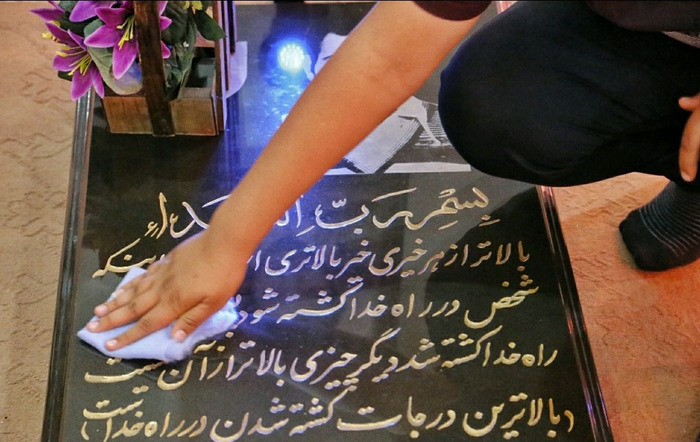 بِسْمِ رَبِّ الشُّهَداءِ
بالاتر از هر خیری خیر بالاتری اینکه
شخص در راه خدا کشته شود
راه خدا کشته شد دیگر چیزی بالاتر از آن نیست
(بالاترین درجات کشته شدن در راه خداست)